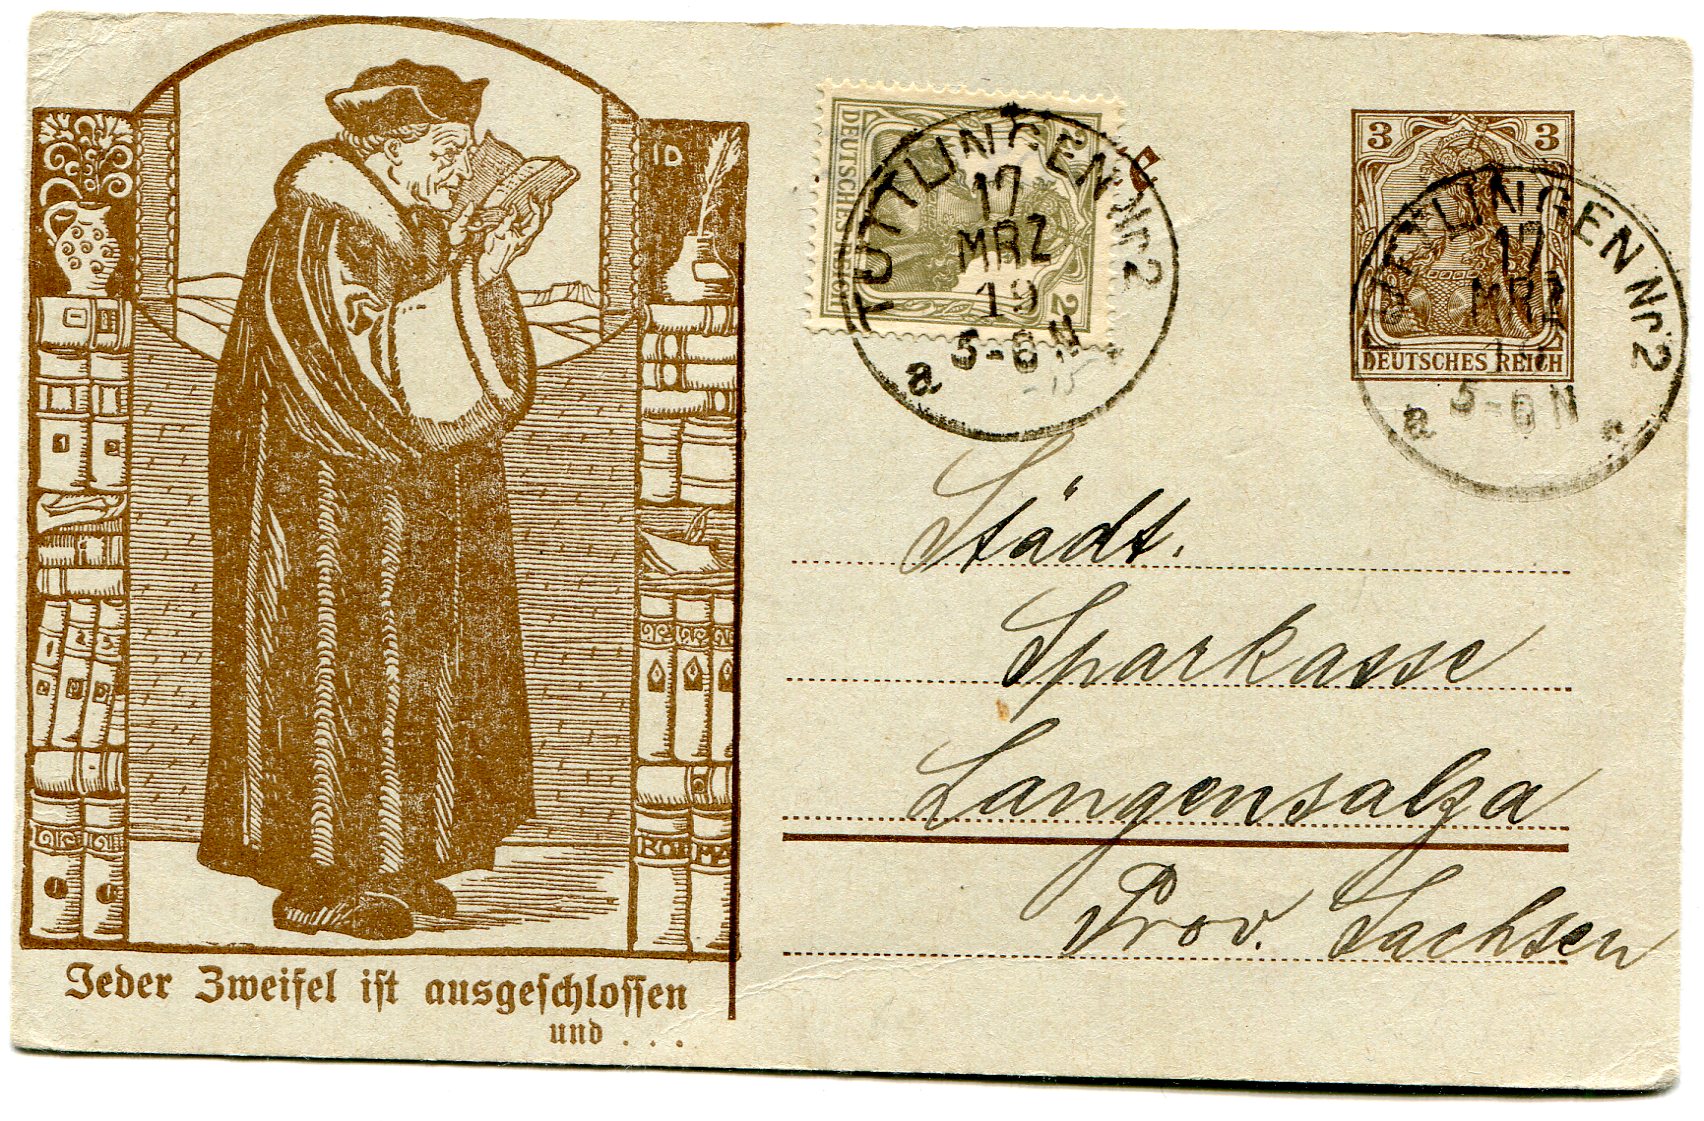 Jeder Zweifel ist ausgeschlossen
und . . .
DEUTSCHES REICH
2
TUTTLINGEN Nr 2
17
MRZ
19
5-6 N
a
3 3
DEUTSCHES REICH
TUTTLINGEN Nr 2
17
MRZ
19
5-6 N
a
Städt.
Sparkasse
Langensalza
Prov. Sachsen